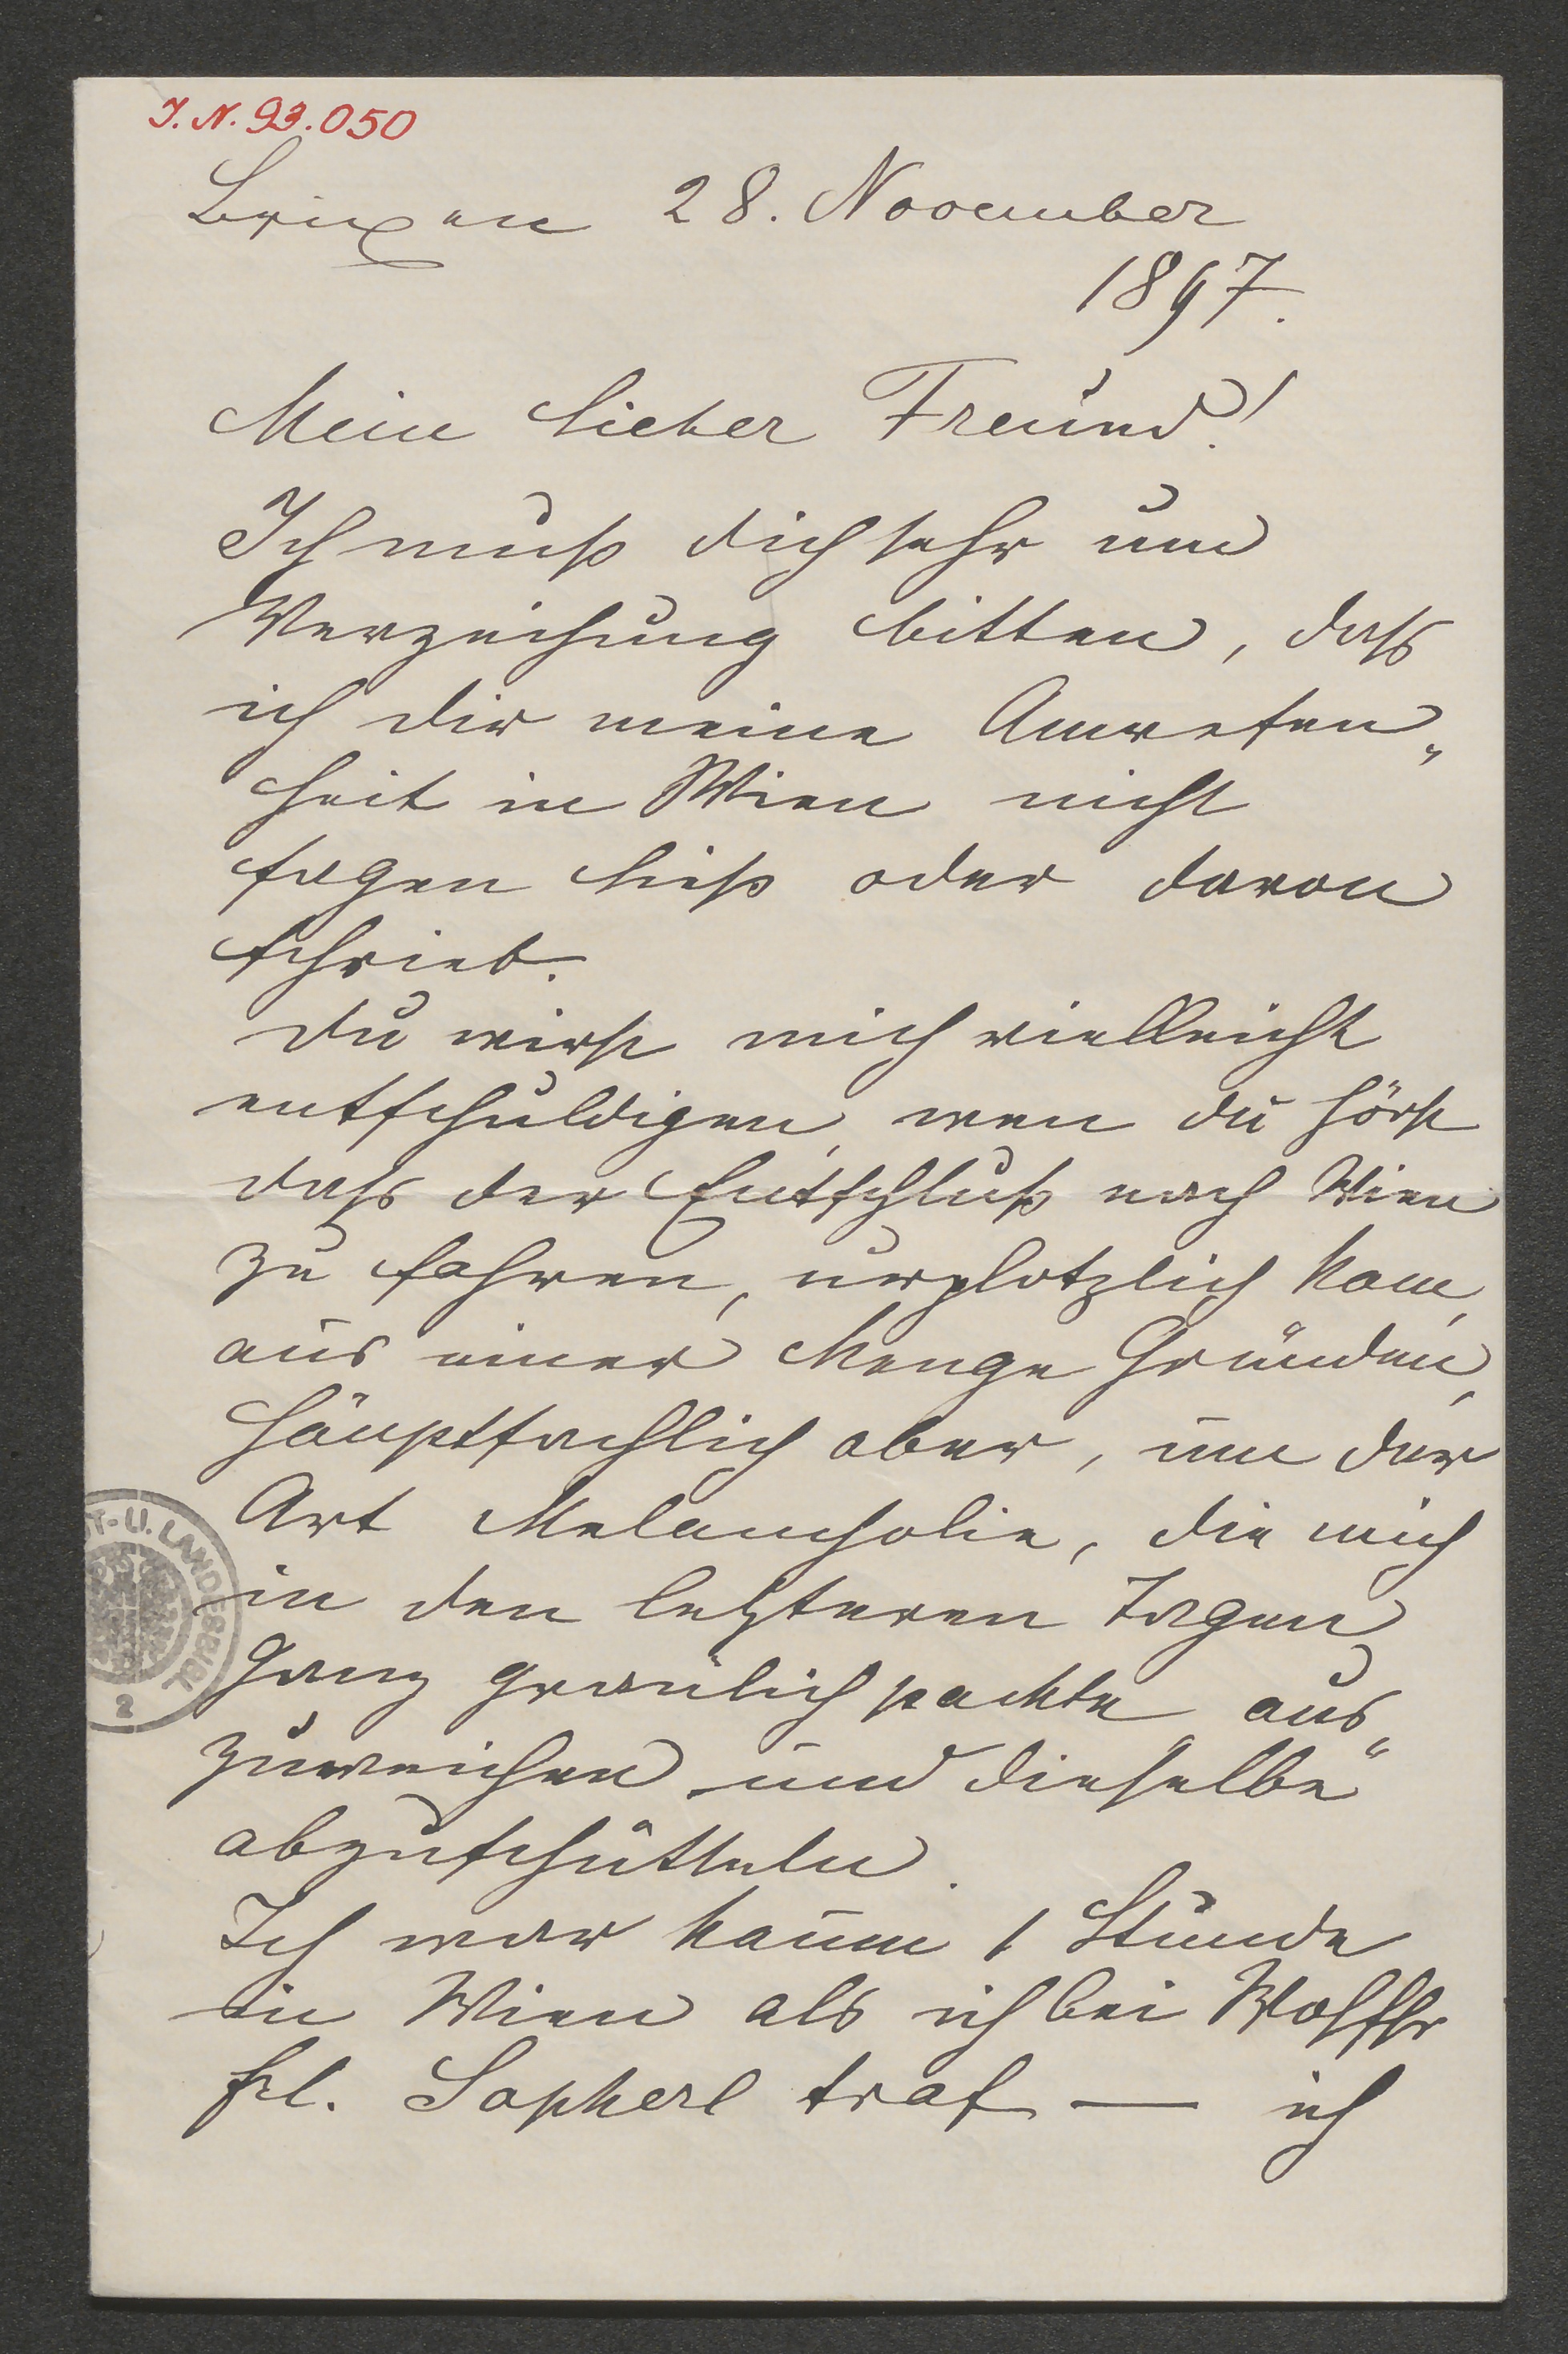 I. N. 93.050
Brixen 28. November
1897.
Mein lieber Freund!
Ich muß dich sehr um
Verzeihung bitten, dass
ich dir meine Anwesen„
heit in Wien nicht
sagen ließ oder davon
schrieb.
Du wirst mich vielleicht
entschuldigen, wen du hörst
dass der Entschluß nach Wien
zu fahren, urplotzlich kam,
aus einer Menge Gründen,
häuptsachlich aber, um der
Art Melancholie, die mich
in den letzteren Tagen
ganz graulich packte aus„
zuweichen und dieselbe
abzuschütteln.
Ich war kaum 1 Stunde
in Wien als ich bei
Frl. Sopherl traf — ich
T- U. LANDESBIBL
2